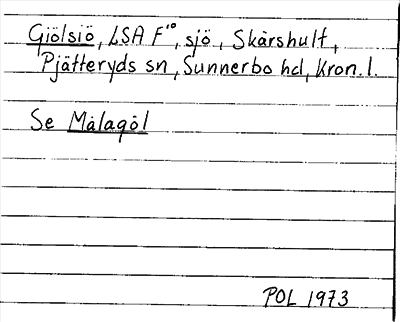 Giölsiö, LSA F¹⁰, sjö, Skårshult,
Pjätteryds sn, Sunnerbo hd, Kron. l.
Se Målagöl
POL 1973